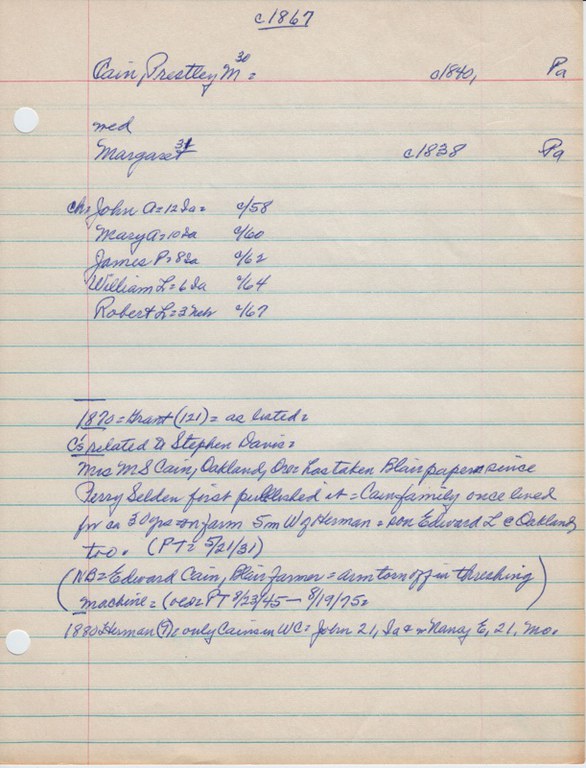 c1867
Cain, Prestley M 30 = c1840, Pa
med
Margaret 31 c1838 Pa
ch: John A = 12 Ia = c/58
Mary A = 10 Ia c/60
James P = 8 Ia c/62
William L = 6 Ia c/64
Robert L = 3 Neb c/67
1870 = Grant (121) = as listed =
C's related to Stephen Davis =
Mrs M S Cain, Oakland, Ore = has taken Blair paper since
Perry Selden first published it = Cain family once lived
for ca 30 yrs on farm 5m W of Herman = son Edward L @ Oakland
too. (PT = 5/21/31)
(NB = Edward Cain, Blair farmer = arm torn off in threshing
machine = PT 8/23/45 — 8/19/75 =
1880 Herman (7) = only Cains in WC = John 21, Ia & Nancy E, 21, Mo.